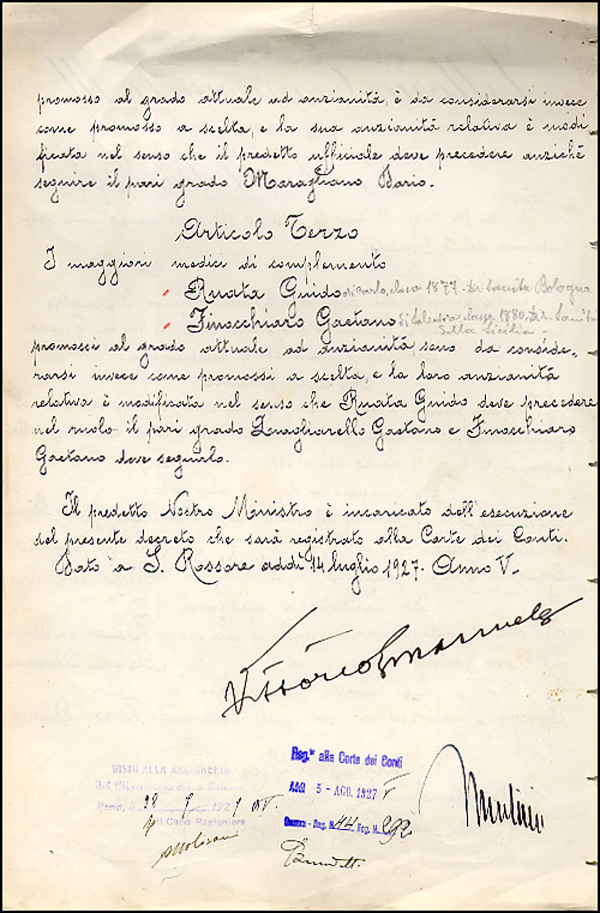 promosso al grado attuale ad anzianità, è da considerarsi invece
come promosso a scelta, e la sua anzianità relativa è modi
ficata nel senso che il predetto ufficiale deve precedere anzichè
seguire il pari grado Maragliano Dario.
Articolo Terzo
I maggiori medici di complemento
Ruata Guido di Carlo, classe 1877 - Bologna
Finocchiaro Gaetano di Salvatore, classe 1880,
Sicilia -
promossi al grado attuale ad anzianità, sono da conside-
rarsi invece come promossi a scelta, e la loro anzianità
relativa è modificata nel senso che Ruata Guido deve precedere
nel ruolo il pari grado Quagliarello Gaetano e Finocchiaro
Gaetano deve seguirlo.
Il predetto Nostro Ministro è incaricato dell'esecuzione
del presente decreto che sarà registrato alla Corte dei Conti.
Dato a S. Rossore addì 14 luglio 1927 - Anno V.
Vittorio Emanuele
VISTO ALLA RAGIONERIA
del Ministero della Guerra
Roma, li 28 7 1927
Il Capo Ragioniere
Reg.to alla Corte dei Conti
Addì 5 - AGO. 1927 V
Guerra - Reg. N. 44 Fog. N. 292
Mussolini